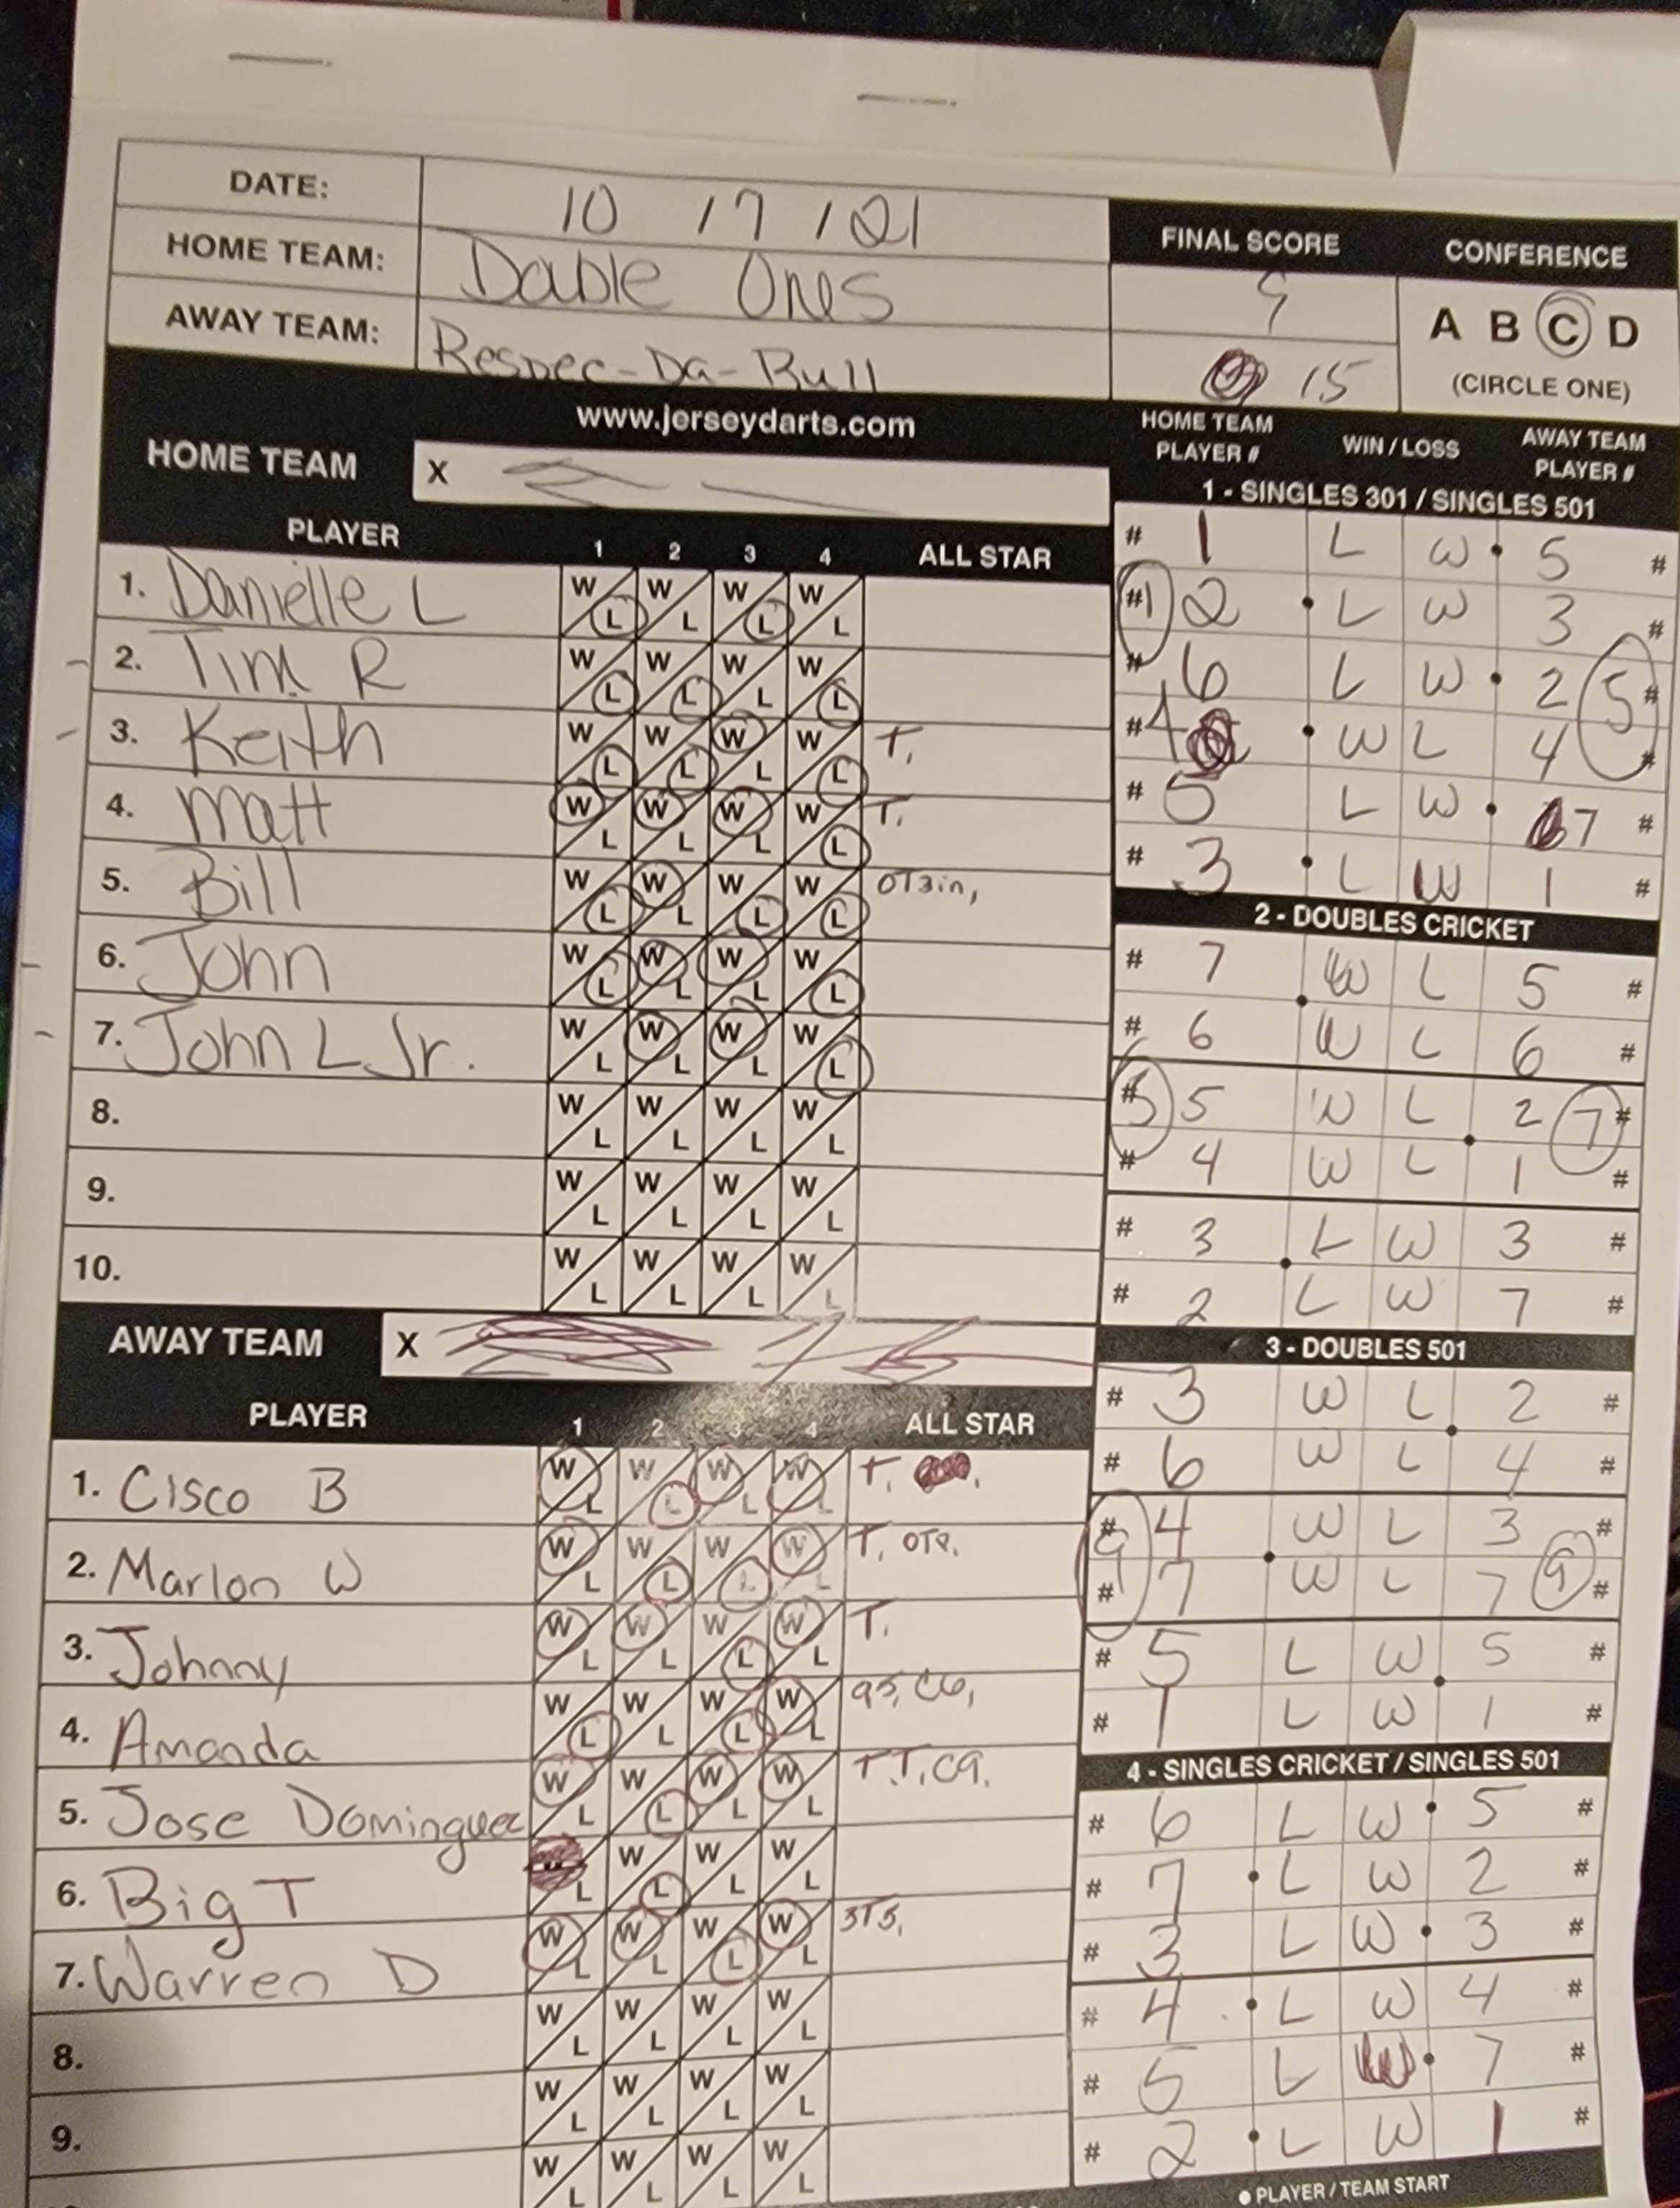 DATE: 10 / 7 / 21
HOME TEAM: Double Ones
AWAY TEAM: Respec-Da-Bull
FINAL SCORE
9
15
CONFERENCE
A B C D
(CIRCLE ONE)
www.jerseydarts.com
HOME TEAM X
PLAYER 1 2 3 4 ALL STAR
1. Danielle L W L W L W L W L
2. Tim R W L W L W L W L
3. Keith W L W L W L W L T,
4. Matt W L W L W L W L T.
5. Bill W L W L W L W L OT3in,
6. John W L W L W L W L
7. John L Jr. W L W L W L W L
8. W L W L W L W L
9. W L W L W L W L
10. W L W L W L W L
AWAY TEAM X
PLAYER 1 2 3 4 ALL STAR
1. Cisco B W L W L W L W L T,
2. Marlon W W L W L W L W L T,
3. Johnny W L W L W L W L T.
4. Amanda W L W L W L W L 95, C6,
5. Jose Dominguez W L W L W L W L T.T, C9.
6. Big T L W L W L W L
7. Warren D W L W L W L W L 3T5,
8. W L W L W L W L
9. W L W L W L W L
W L W L W L W L
HOME TEAM PLAYER # WIN / LOSS AWAY TEAM PLAYER #
1 - SINGLES 301 / SINGLES 501
# 1 L W 5 #
# 2 L W 3 #
1
# 6 L W 2 #
5
# 4 W L 4 #
# 5 L W 7 #
# 3 L W 1 #
2 - DOUBLES CRICKET
# 7 W L 5 #
# 6 W L 6 #
# 5 W L 2 #
5 7
# 4 W L 1 #
# 3 L W 3 #
# 2 L W 7 #
3 - DOUBLES 501
# 3 W L 2 #
# 6 W L 4 #
# 4 W L 3 #
9 9
# 7 W L 7 #
# 5 L W 5 #
# 1 L W 1 #
4 - SINGLES CRICKET / SINGLES 501
# 6 L W 5 #
# 7 L W 2 #
# 3 L W 3 #
# 4 L W 4 #
# 5 L W 7 #
# 2 L W 1 #
● PLAYER / TEAM START